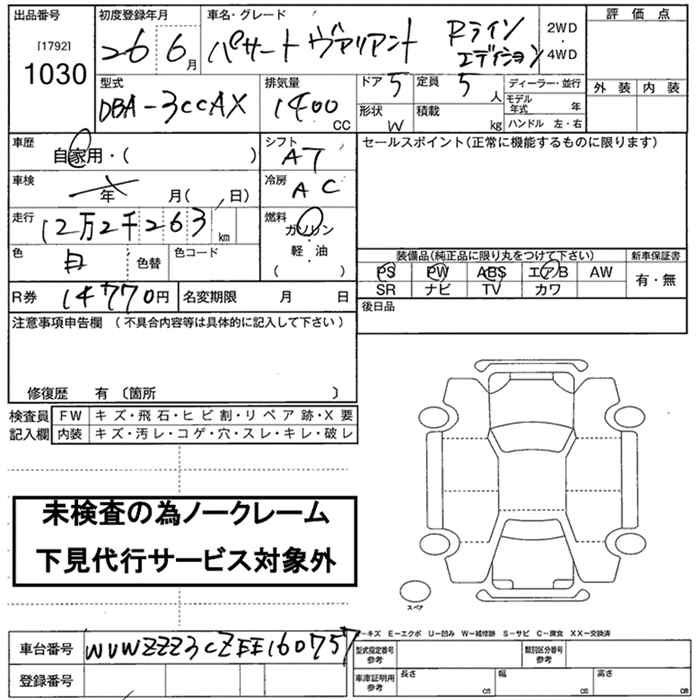 出品番号 初度登録年月 車名・グレード 評価点
[1792] 26 6月 パサート ヴァリアント Rライン 2WD
1030 エディション 4WD
型式 排気量 ドア 5 定員 5人 ディーラー・並行 外装 内装
DBA-3CCAX 1400CC 形状 W 積載 kg モデル年式 年
ハンドル 左・右
車歴 自家用・( ) シフト AT セールスポイント(正常に機能するものに限ります)
車検 年 月( 、日) 冷房 AC
走行 12万2千263km 燃料 ガソリン
色 白 色替 色コード 軽・油 装備品(純正品に限り丸をつけて下さい) 新車保証書
( ) PS PW ABS エアB AW 有・無
R券 14770円 名変期限 月 日 SR ナビ TV カワ
注意事項申告欄 (不具合内容等は具体的に記入して下さい) 後日品
修復歴 有 〔箇所 〕
検査員 FW キズ・飛石・ヒビ割・リペア跡・X要
記入欄 内装 キズ・汚レ・コゲ・穴・スレ・キレ・破レ
未検査の為ノークレーム
下見代行サービス対象外
スペア
A-キズ E-エクボ U-凹み W-補修跡 S-サビ C-腐食 XX-交換済
車台番号 WVWZZZ3CZEE160757 型式指定番号 参考 類別区分番号 参考
登録番号 車庫証明用 参考 長さ cm 幅 cm 高さ cm